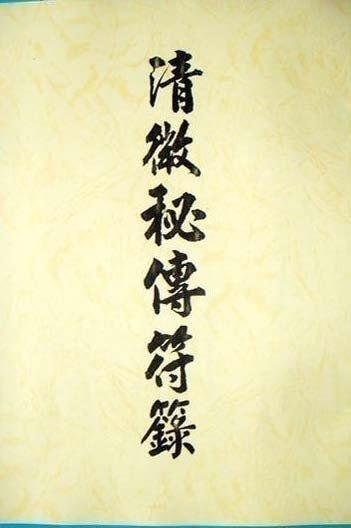 清微秘傳符籙